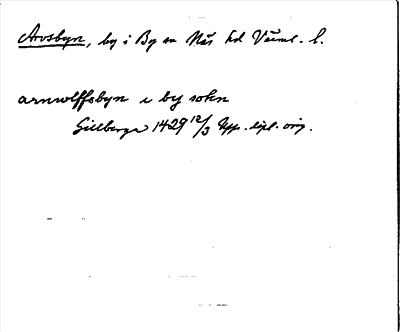 Arvsbyn, by i By sn Näs hd Värml. l.
arnwlffsbyn i by sokn
Gillberga 1429 12/3 Upps. dipl. orig.